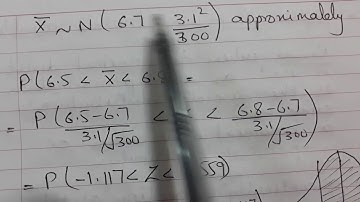 X̄ ~ N(6.7 3.1²/300) approximately
P(6.5 < X̄ < 6. =
= P(6.5-6.7/3.1/√300 < < 6.8-6.7/3.1/√300)
= P(-1.117 < Z < 559)